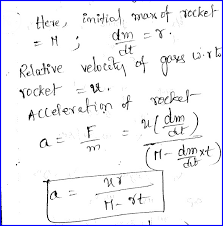 Here, initial max of rocket
= M ; dm/dt = r.
Relative velocity of gases w.r.to
rocket = u.
Acceleration of rocket
a = F/m = u(dm/dt)/(M - dm/dt xt)
a = ur/(M - rt)